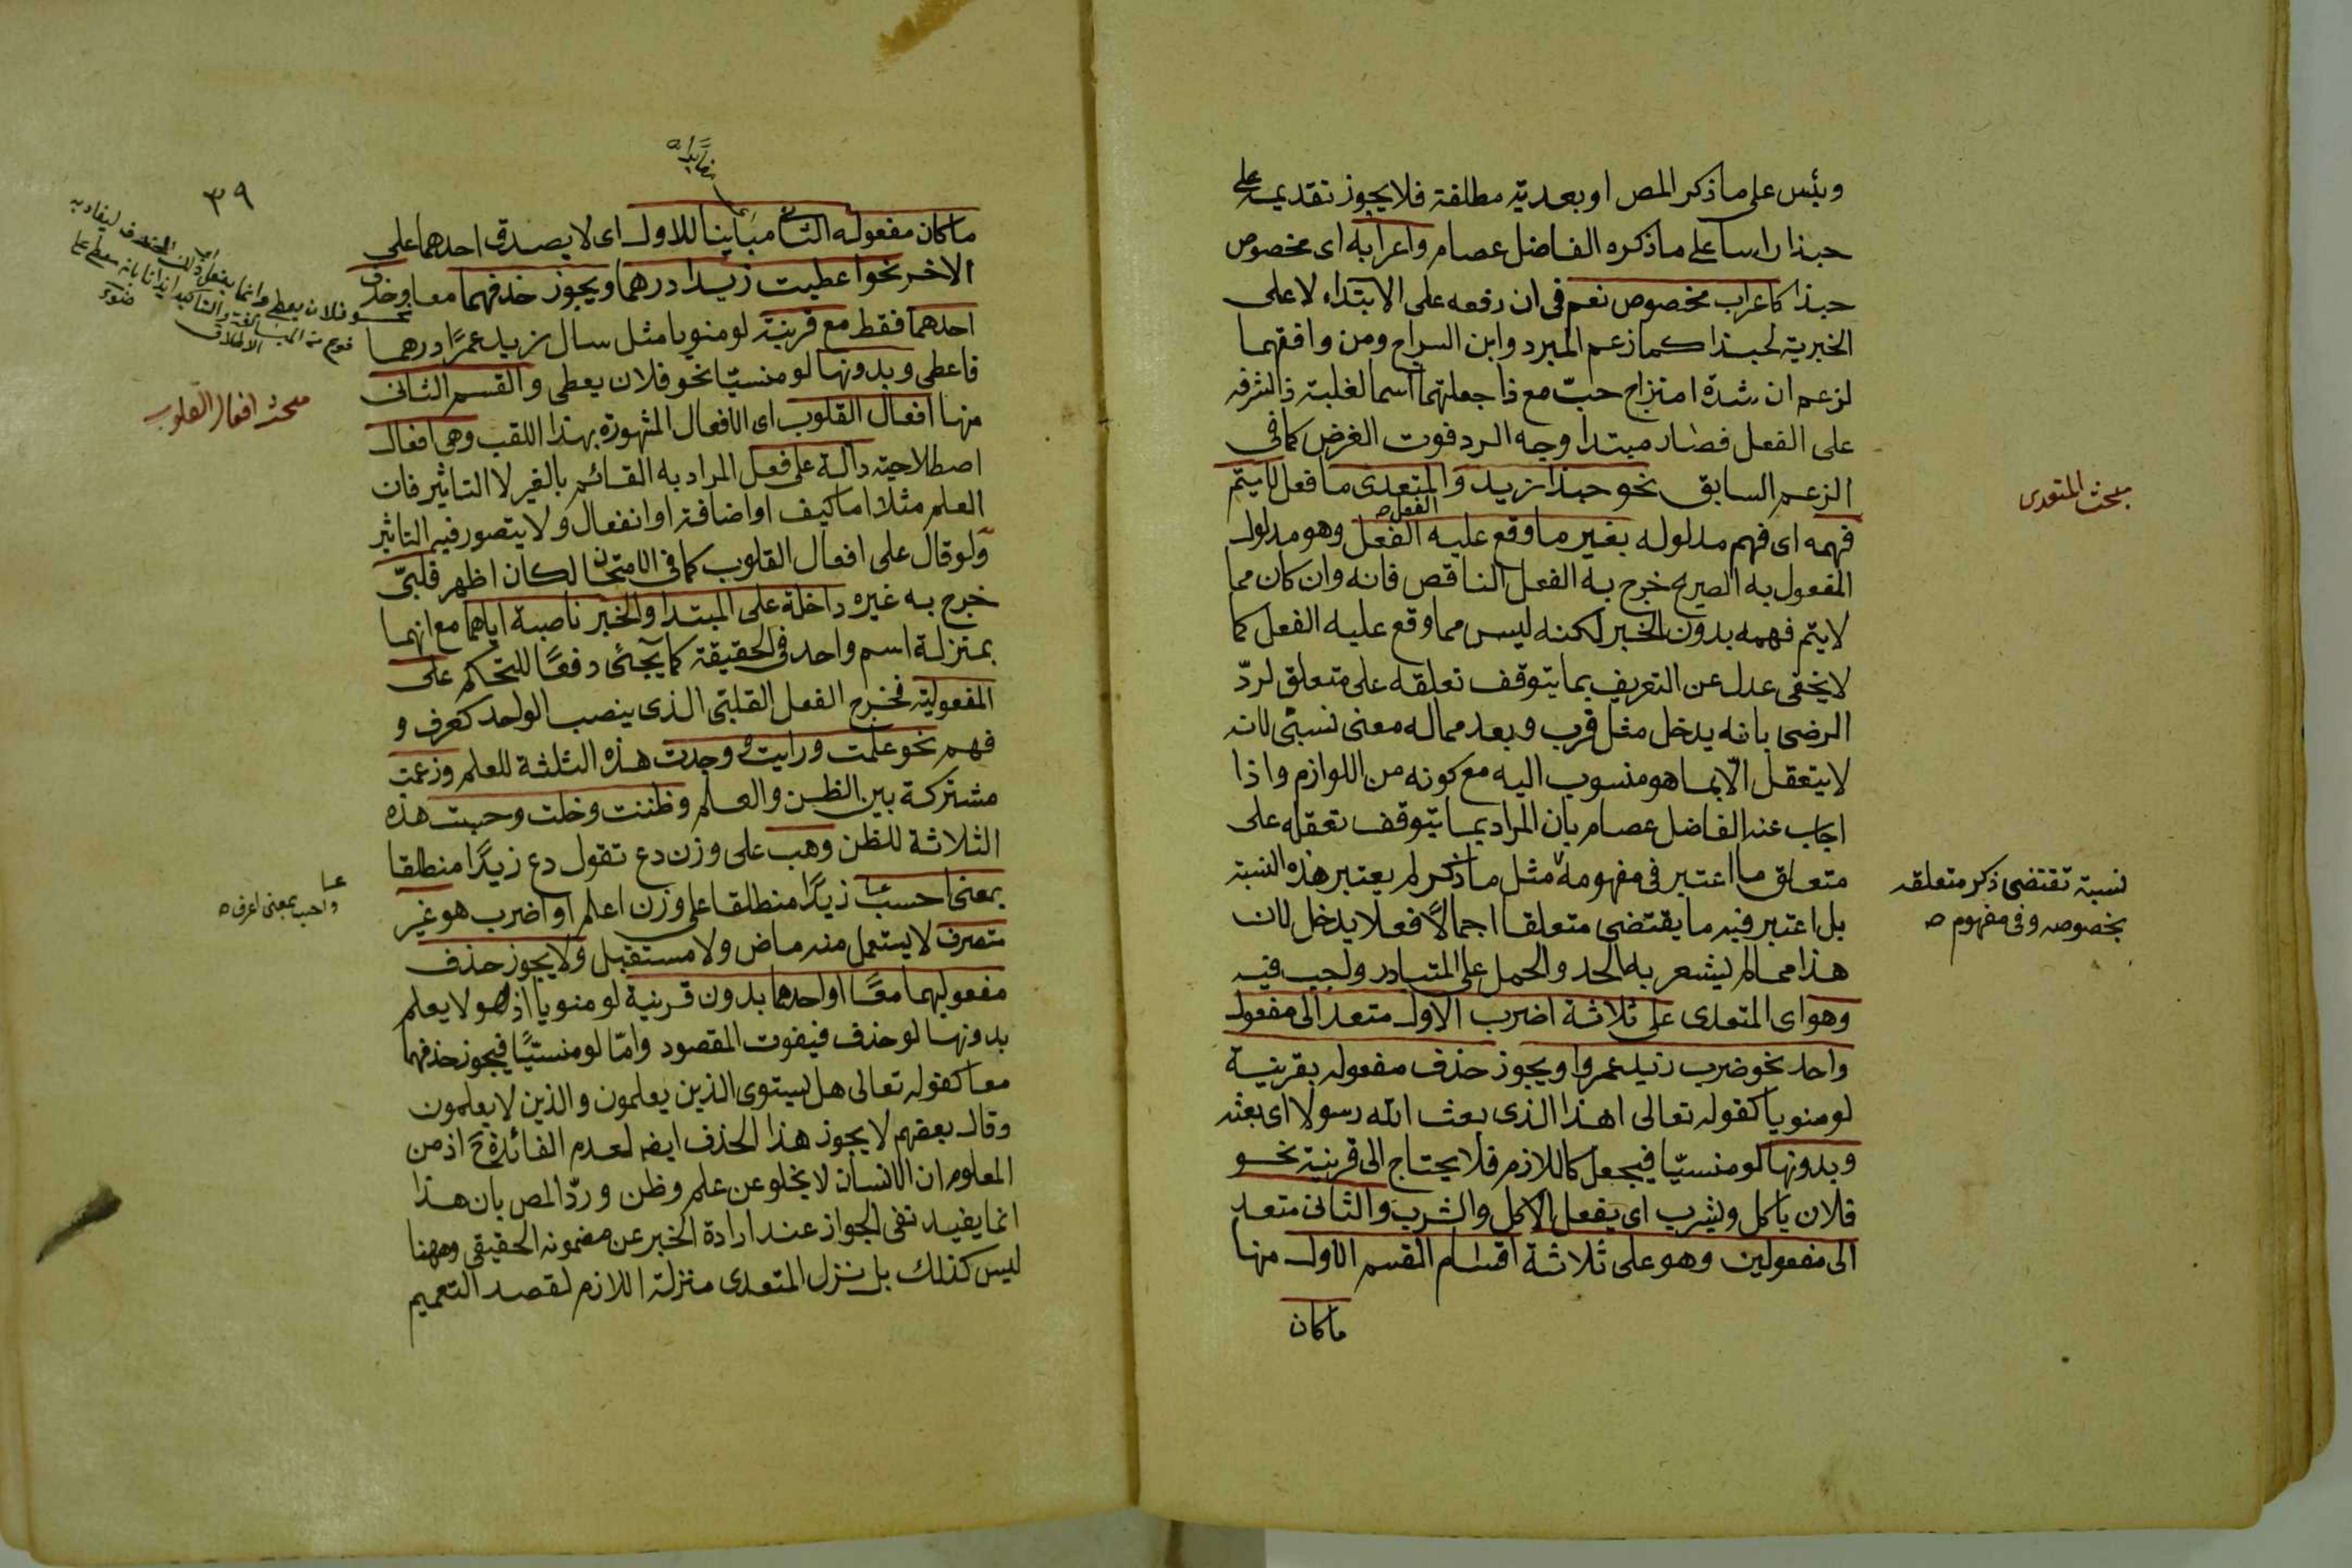 وبئس على ما ذكر المص او بعديته مطلقة فلا يجوز تقديمه على
حبذا راسا على ما ذكره الفاضل عصام واعرابه اى مخصوص
حبذا كاعراب مخصوص نعم فى ان رفعه على الابتداء لا على
الخبرية لحبذا كما زعم المبرد وابن السراج ومن وافقهما
لزعم ان شدة امتزاج حبّ مع ذا جعلتهما اسما لغلبة ذا لشرفه
على الفعل فصار مبتدا وجه الرد فوت الغرض كما فى
الزعم السابق نحو حبذا زيد والمتعدى ما فعل لا يتم
فهمه اى فهم مدلوله بغير ما وقع عليه الفعل وهو مدلول
الفعل
المفعول به الصريح خرج به الفعل الناقص فانه وان كان مما
لا يتم فهمه بدون الخبر لكنه ليس مما وقع عليه الفعل كما
لا يخفى عدل عن التعريف بما يتوقف تعلقه على متعلق لردّ
الرضى بانه يدخل مثل قرب وبعد مما له معنى نسبىّ لانه
لا يتعقل الّا بما هو منسوب اليه مع كونه من اللوازم واذا
اجاب عنه الفاضل عصام بان المراد بما يتوقف تعقله على
متعلق ما اعتبر فى مفهومه مثل ما ذكر لم يعتبر هذه النسبة
بل اعتبر فيه ما يقتضى متعلقا اجمالًا فعلا يدخل لان
هذا مما لم يشعر به الحد والحمل على المتبادر واجب فيه
وهو اى المتعدى على ثلاثة اضرب الاول متعد الى مفعول
واحد نحو ضرب زيد عمروا ويجوز حذف مفعوله بقرينة
لو منويا كقوله تعالى اهذا الذى بعث الله رسولا اى بعثه
وبدونها لو منسيّا فيجعل كاللازم فلا يحتاج الى قرينة نحو
فلان ياكل ويشرب اى يفعل الاكل والشرب والثانى متعد
الى مفعولين وهو على ثلاثة اقسام القسم الاول منها
ما كان
مبحث المتعدى
نسبة تقتضى ذكر متعلقه
بخصوصه وفى مفهوم
٣٩
ما كان مفعوله الثانى مبَاينا للاول اى لا يصدق احدهما على
الاخر نحو اعطيت زيدا درهما ويجوز حذفهما معا وحذف
احدهما فقط مع قرينة لو منويا مثل سال زيد عمرًا درهما
فاعطى وبدونها لو منسيّا نحو فلان يعطى والقسم الثانى
منها افعال القلوب اى الافعال المشهورة بهذا اللقب وهى افعال
اصطلاحية دالة على فعل المراد به القائم بالغير لا التاثير فان
العلم مثلا اما كيف او اضافة او انفعال ولا يتصور فيه التاثير
ولو قال على افعال القلوب كما فى الامتحان لكان اظهر قلبىّ
خرج به غيره داخلة على المبتدا والخبر ناصبة اياهما مع انهما
بمنزلة اسم واحد فى الحقيقة كما يجئ دفعًا للتحكم على
المفعولية فخرج الفعل القلبى الذى ينصب الواحد كعرف و
فهم نحو علمت ورايت ووجدت هذه الثلثة للعلم وزعمت
مشتركة بين الظن والعلم وظننت وخلت وحسبت هذه
الثلاثة للظن وهب على وزن دع تقول دع زيدًا منطلقا
بمعنى احسب زيدًا منطلقا على وزن اعلم او اضرب هو غير
متصرف لا يستعمل منه ماض ولا مستقبل ولا يجوز حذف
مفعوليهما معًا او احدهما بدون قرينة لو منويا اذ هو لا يعلم
بدونها لو حذف فيفوت المقصود وامّا لو منسيًّا فيجوز حذفهما
معا كقوله تعالى هل يستوى الذين يعلمون والذين لا يعلمون
وقال بعضهم لا يجوز هذا الحذف ايضه لعدم الفائدة ح اذ من
المعلوم ان الانسان لا يخلو عن علم وظن وردّ المص بان هذا
انما يفيد نفى الجواز عند ارادة الخبر عن مضمونه الحقيقى وههنا
ليس كذلك بل ينزل المتعدى منزلة اللازم لقصد التعميم
مبحث افعال القلوب
واحسب بمعنى اعرف